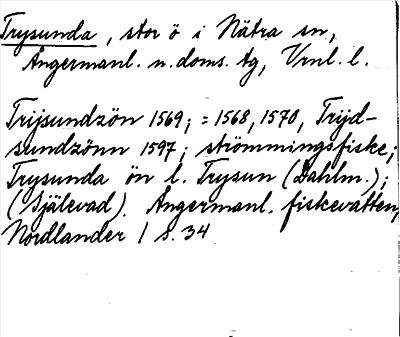 Trysunda, stor ö i Nätra sn,
Ångermanl. n. doms. tg, Vrnl. l.
Trijsundzön 1569; = 1568, 1570, Trijd-
sundzönn 1597; strömmingsfiske;
Trysunda ön l. Trysun (Dahlm.);
(Själevad). Ångermanl. fiskevatten,
Nordlander / s. 34